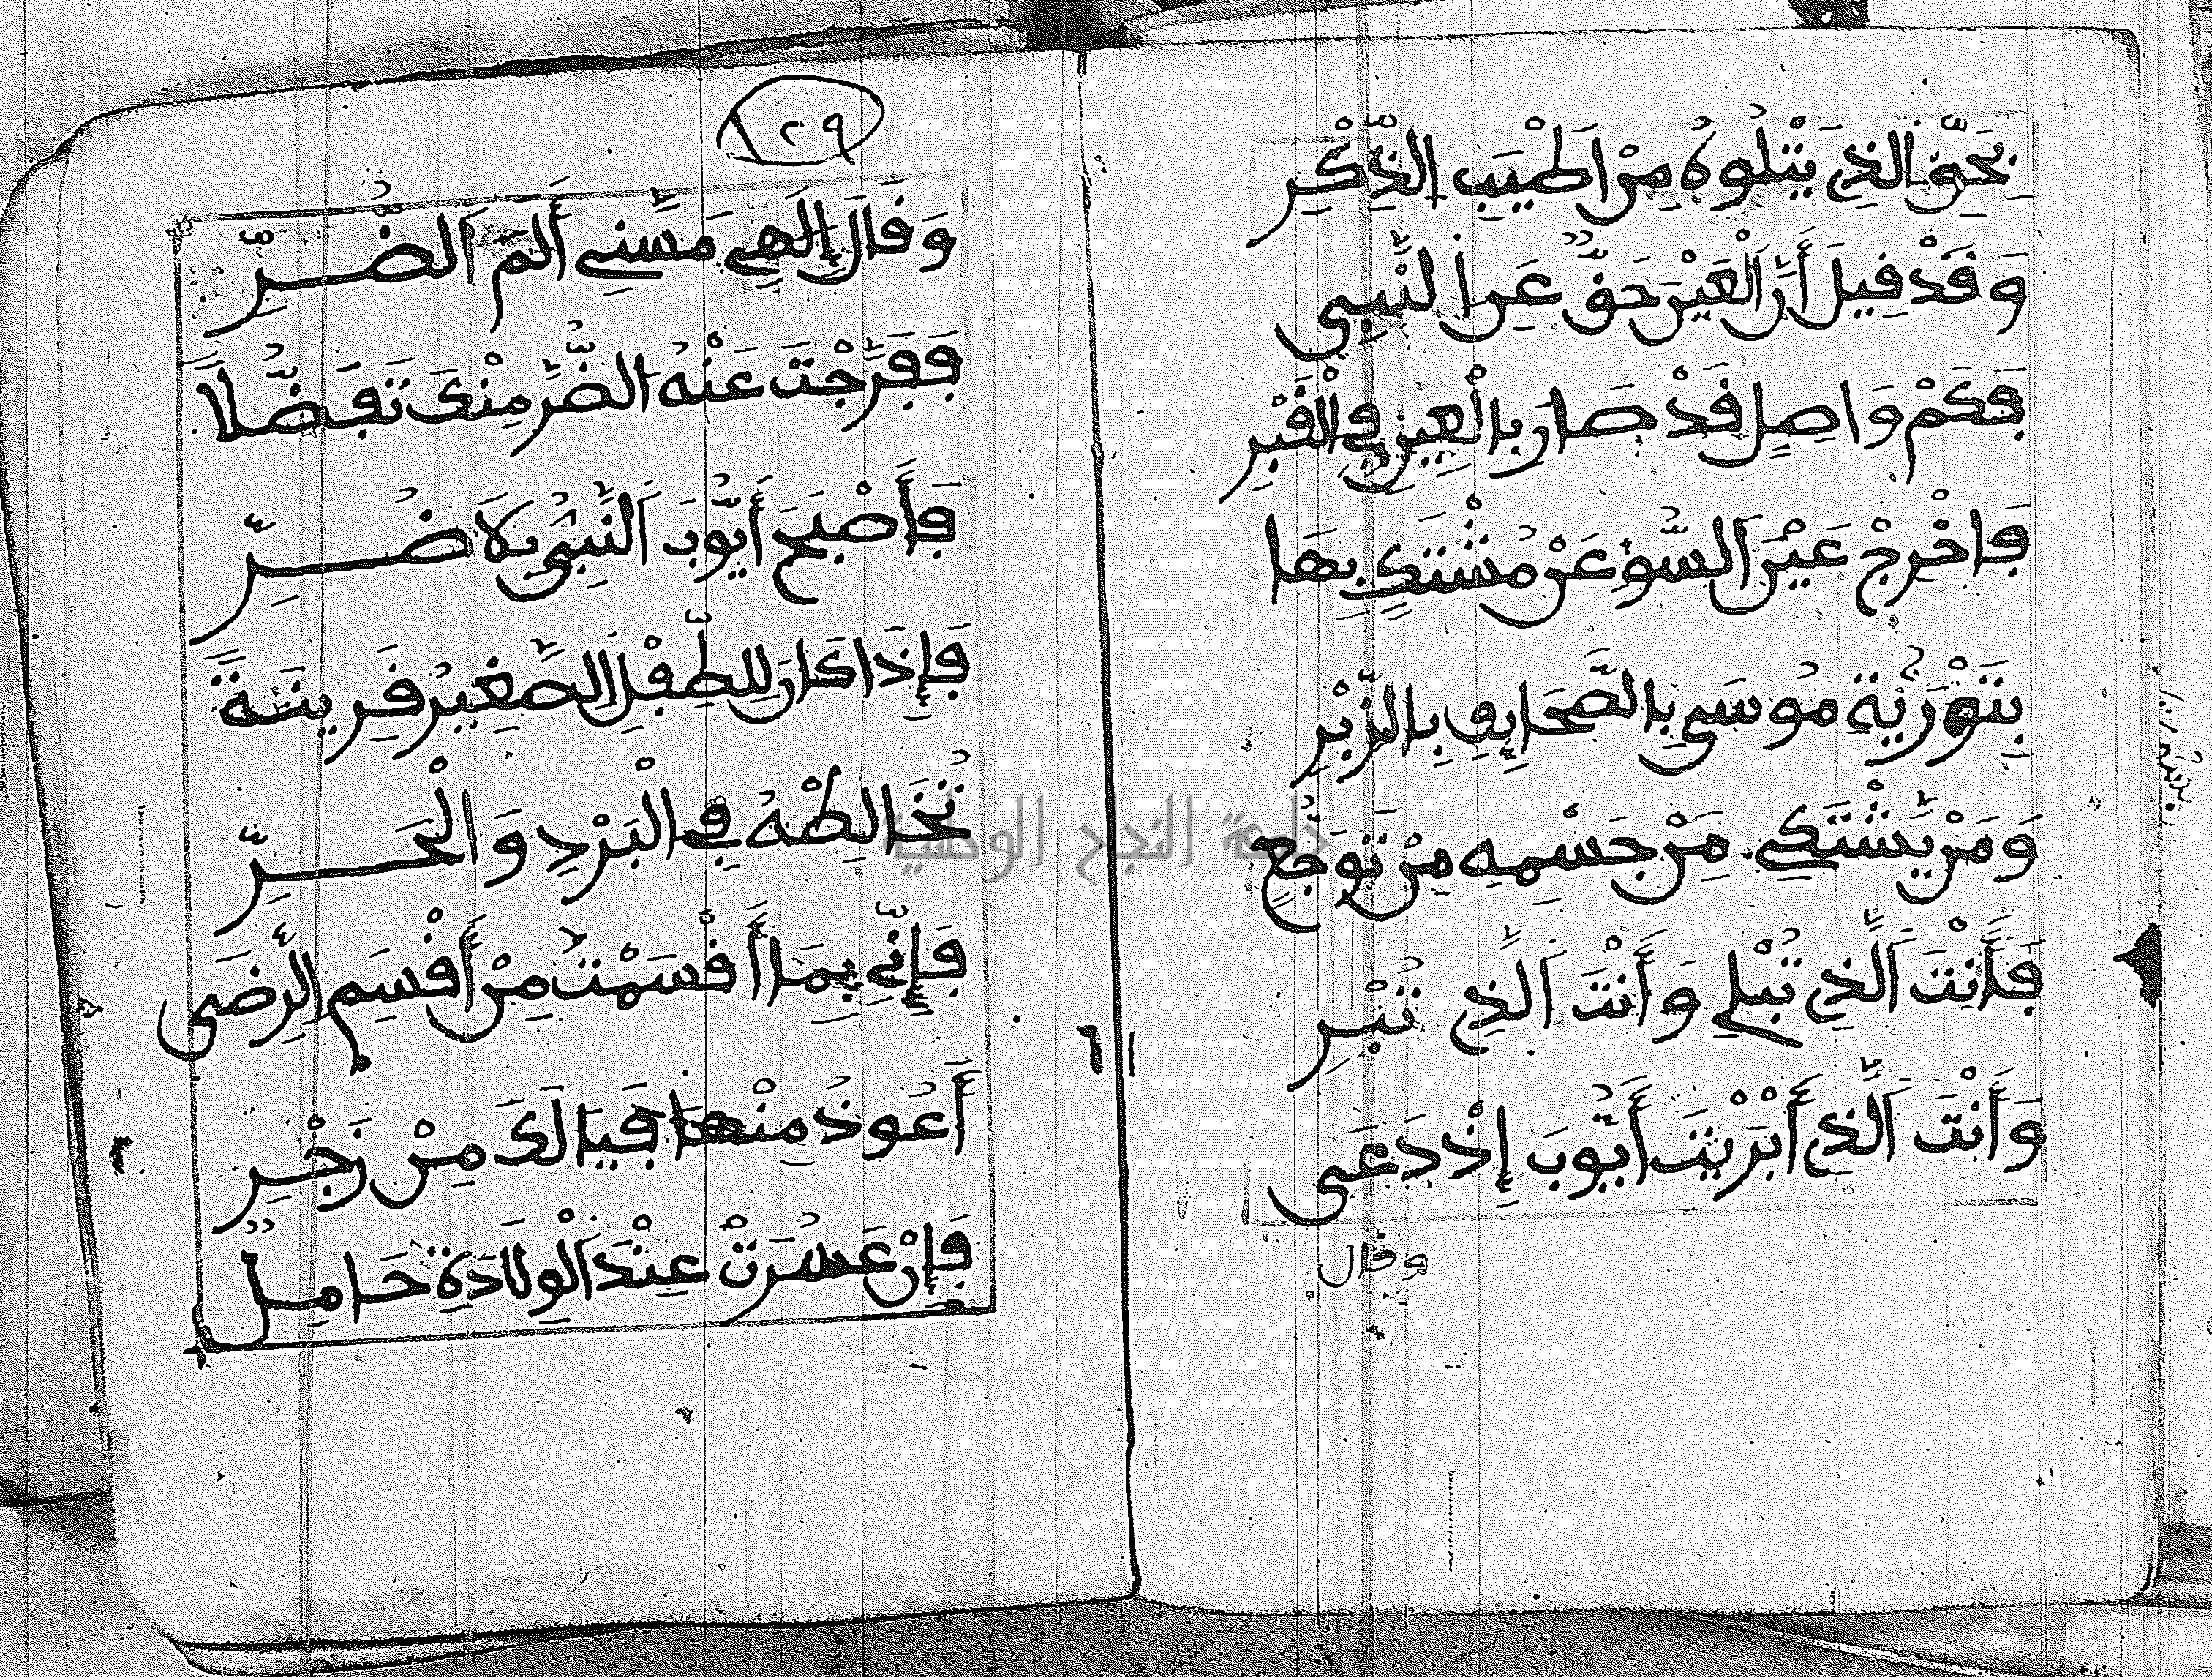 بِحَقِّ الذِي يَتْلُوهُ مِنْ أَطْيَبِ الذِّكْرِ
وَقَدْ قِيلَ أَنَّ الْعَيْنَ حَقٌّ عَنِ النَّبِي
فَكَمْ وَاصِلٍ قَدْ صَارَ بِالْعَيْنِ فِي الْقَبْرِ
فَاخْرِجْ عَيْنَ السُّوءِ عَنْ مُشْتَكٍ بِهَا
بِتَوْرِيَةِ مُوسَى بِالصَّحَايِفِ بِالزُّبْرِ
وَمَنْ يَشْتَكِي مِنْ جِسْمِهِ مِنْ تَوَجُّعٍ
فَأَنْتَ الَّذِي تُبْلِي وَأَنْتَ الَّذِي تُبْرِ
وَأَنْتَ الَّذِي أَبْرَيْتَ أَيُّوبَ إِذْ دَعَى
وقال
٢٩
وَقَالَ إِلَهِي مَسَّنِي أَلَمُ الضُّرِّ
فَفَرَّجْتَ عَنْهُ الضُّرَّ مِنْكَ تَفَضُّلاً
فَأَصْبَحَ أَيُّوبَ النَّبِيُّ بِلَا ضُرِّ
فَإِذَا كَانَ لِلطِّفْلِ الصَّغِيرِ قَرِينَةً
تُخَالِطُهُ فِي الْبَرْدِ وَالْحَرِّ
فَإِنِّي بِمَا أَقْسَمْتُ مِنْ أَقْسَمِ الرِّضَى
أَعُوذُ مِنْهَا فَيَا لَكَ مِنْ زَجْرِ
فَإِنْ عَسُرَتْ عِنْدَ الْوِلَادَةِ حَامِلٌ
٦١
جامعة النجاح الوطنية